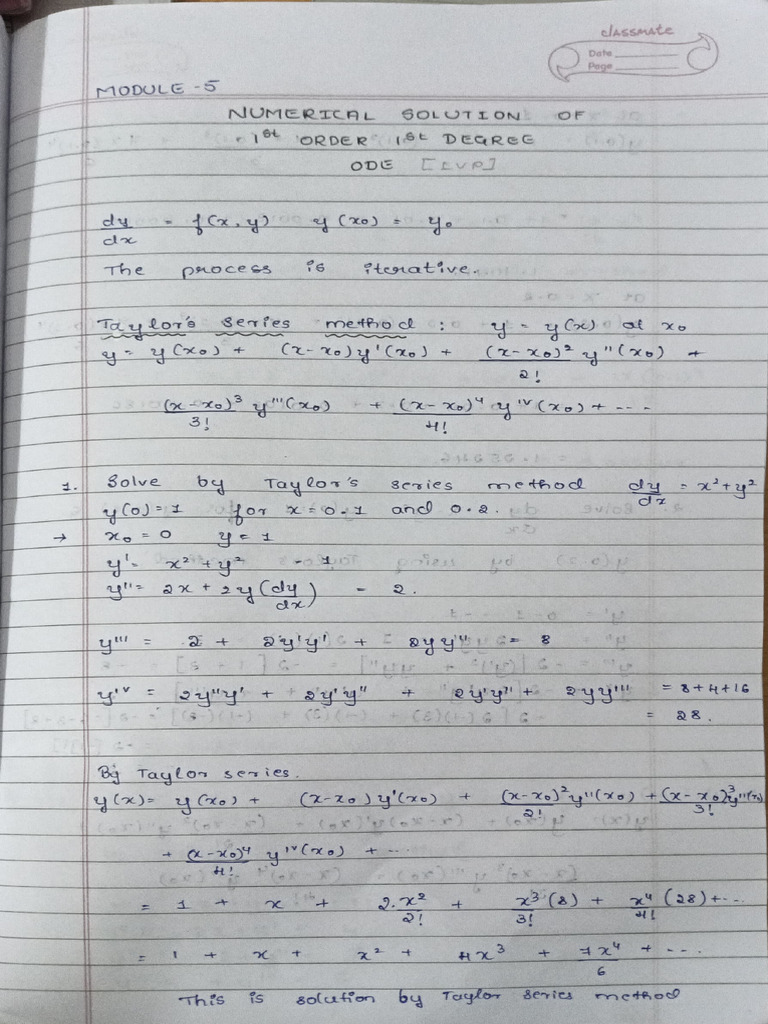 classmate
Date
Page
MODULE - 5
NUMERICAL SOLUTION OF
1st ORDER 1st DEGREE
ODE [IVP]
dy/dx = f(x, y) y(x₀) = y₀
The process is iterative.
Taylor's series method : y = y(x) at x₀
y = y(x₀) + (x-x₀)y'(x₀) + (x-x₀)²/2! y''(x₀) +
(x-x₀)³/3! y'''(x₀) + (x-x₀)⁴/4! y'ᵛ(x₀) + ---
1. Solve by Taylor's series method dy/dx = x²+y²
y(0)=1 for x=0.1 and 0.2.
→ x₀=0 y=1
y' = x²+y² - 1
y'' = 2x + 2y(dy/dx) = 2.
y''' = 2 + 2y'y' + 2yy'' = 8
y'ᵛ = 2y''y' + 2y'y'' + 2y'y'' + 2yy''' = 8+4+16
= 28.
By Taylor series.
y(x) = y(x₀) + (x-x₀)y'(x₀) + (x-x₀)²/2! y''(x₀) + (x-x₀)³/3! y'''(x₀)
+ (x-x₀)⁴/4! y'ᵛ(x₀) + ---
= 1 + x + 2.x²/2! + x³/3! (8) + x⁴/4! (28) + ---
= 1 + x + x² + 4x³ + 7x⁴/6 + ---
This is solution by Taylor series method